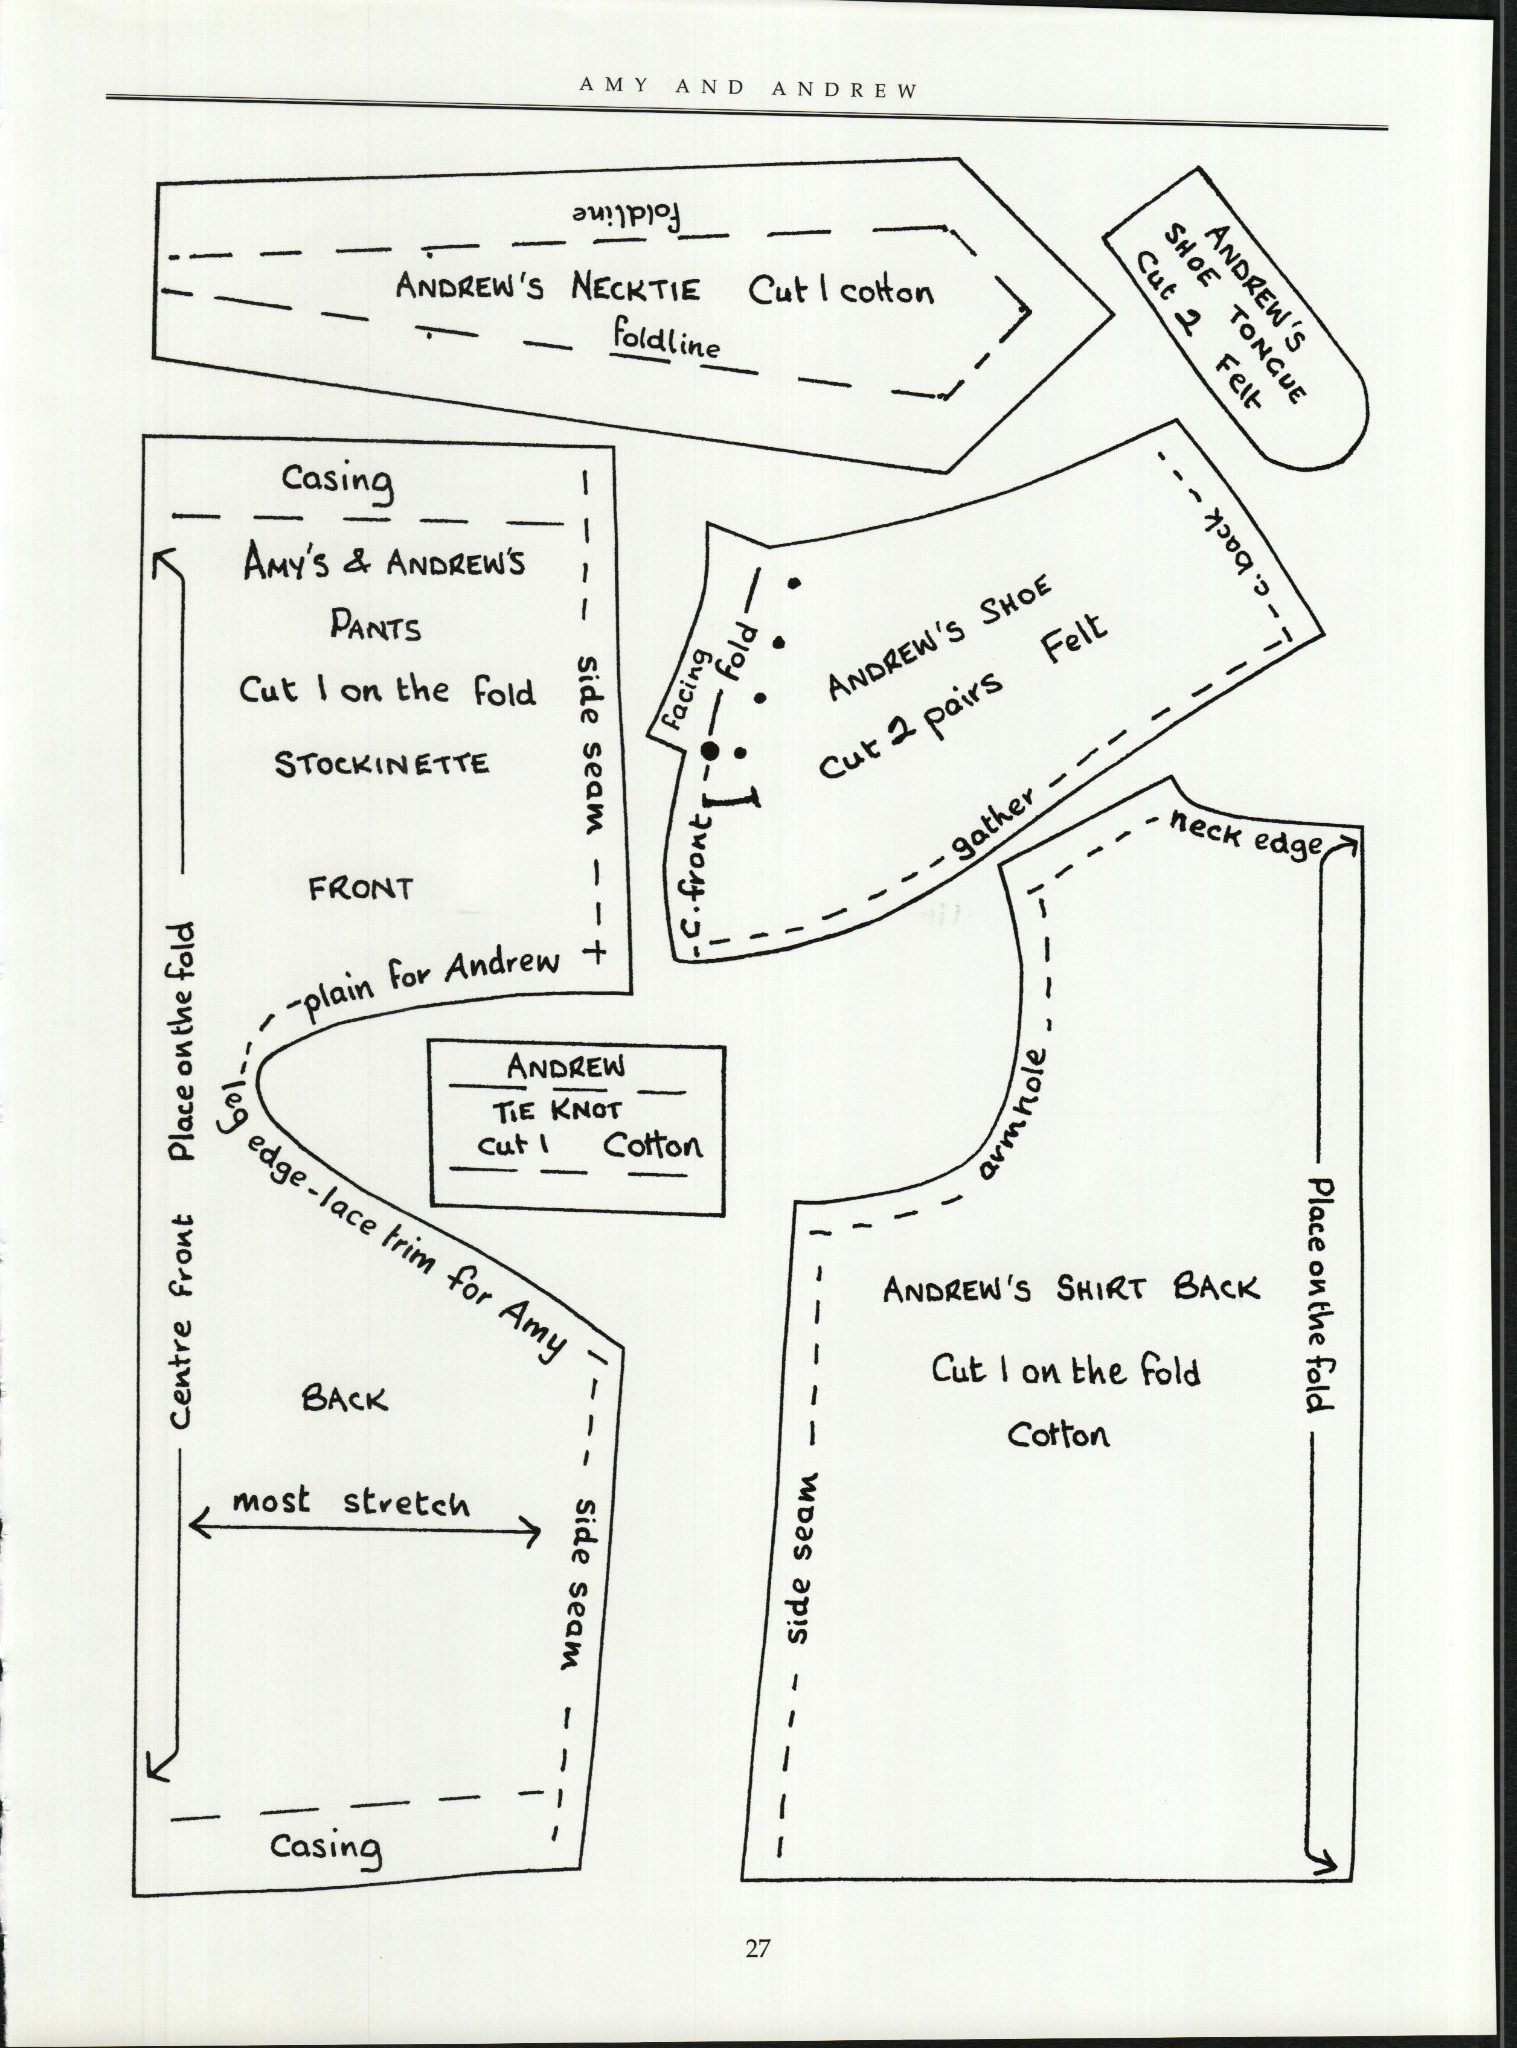 AMY AND ANDREW
foldline
ANDREW'S NECKTIE Cut 1 cotton
foldline
ANDREW'S
SHOE TONGUE
Cut 2 Felt
Casing
AMY'S & ANDREW'S
PANTS
Cut 1 on the fold
STOCKINETTE
FRONT
side seam
plain for Andrew
leg edge - lace trim for Amy
Centre front Place on the fold
BACK
most stretch
side seam
Casing
facing
fold
c. back
ANDREW'S SHOE
Cut 2 pairs Felt
c. front
gather
ANDREW
TIE KNOT
cut 1 Cotton
neck edge
armhole
ANDREW'S SHIRT BACK
Cut 1 on the fold
Cotton
side seam
Place on the fold
27